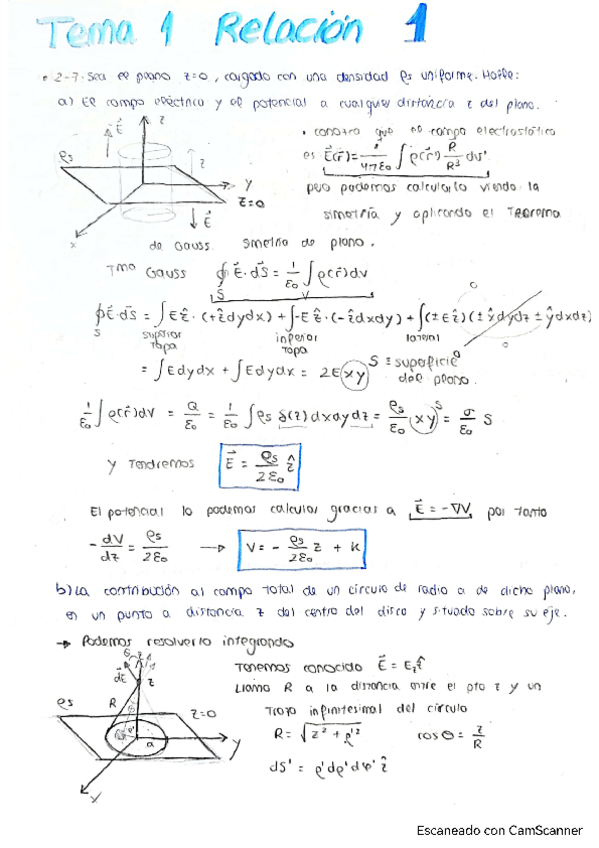 Tema 1 Relación 1
• 2-7. Sea el plano z=0, cargado con una densidad ρs uniforme. Halle:
a) El campo eléctrico y el potencial a cualquier distancia z del plano.
E⃗ z
ρs z
y
z=0
E⃗
x
• conozca que el campo electrostático
es E⃗(r⃗) = 1/4πε₀ ∫ ρ(r⃗') R⃗/R³ dv'
pero podemos calcularlo viendo la
simetría y aplicando el Teorema
de Gauss. Simetría de plano.
Tma Gauss ∮_S E⃗·dS⃗ = 1/ε₀ ∫_V ρ(r⃗)dv
∮_S E⃗·dS⃗ = ∫Eẑ·(+ẑdydx) + ∫-Eẑ·(-ẑdxdy) + ∫(±Eẑ)(±x̂dydz ± ŷdxdz) 0
superior tapa inferior tapa lateral
= ∫Edydx + ∫Edydx = 2E(xy) S ≡ superficie del plano.
1/ε₀ ∫ρ(r⃗)dV = Q/ε₀ = 1/ε₀ ∫ρs δ(z)dxdydz = ρs/ε₀ (xy) S = σ/ε₀ S
y tendremos E⃗ = ρs/2ε₀ ẑ
El potencial lo podemos calcular gracias a E⃗ = -∇V, por tanto
-dV/dz = ρs/2ε₀ → V = - ρs/2ε₀ z + k
b) La contribución al campo total de un círculo de radio a de dicho plano,
en un punto a distancia z del centro del disco y situado sobre su eje.
→ Podemos resolverlo integrando
dE⃗
z
ρs R z=0
a y
x
Tenemos conocido E⃗ = E_z ẑ
Llamo R a la distancia entre el pto z y un
trozo infinitesimal del círculo
R = √(z² + ρ'²) cosθ = z/R
dS' = ρ'dρ'dφ' ẑ
Escaneado con CamScanner